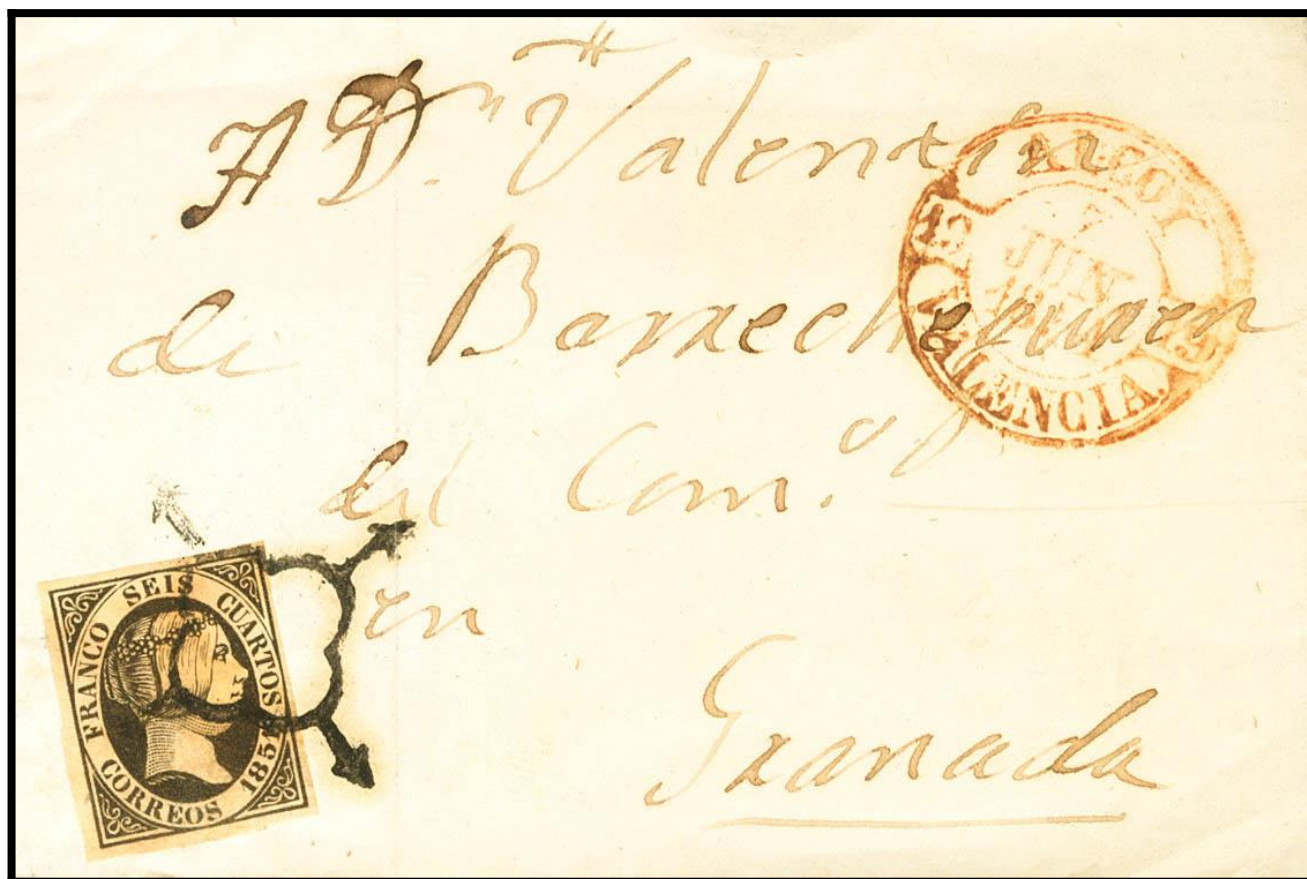 A Dn. Valentin
de Barrecheguren
del Com.o
en
Granada
ALCOY
7
JUN
VALENCIA.
FRANCO SEIS CUARTOS
CORREOS 1851